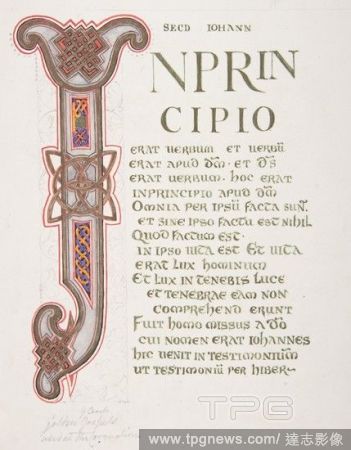 SECD IOHANN
INPRIN
CIPIO
ERAT UERBUM ET UERBŪ
ERAT APUD DM̄ · ET DS̄
ERAT UERBUM · HOC ERAT
INPRINCIPIO APUD DM̄
OMNIA PER IPSŪ FACTA SUN̄
ET SINE IPSO FACTU EST NIHIL
QUOD FACTUM EST ·
IN IPSO UITA EST ET UITA
ERAT LUX HOMINUM
ET LUX IN TENEBIS LUCE
ET TENEBRAE EAM NON
COMPREHEND ERUNT
FUIT HOMO MISSUS A DŌ
CUI NOMEN ERAT IOHANNES
HIC UENIT IN TESTIMONIUM
UT TESTIMONIŪ PER HIBER
golden Gospels
TPG
www.tpgnews.com/ 達志影像